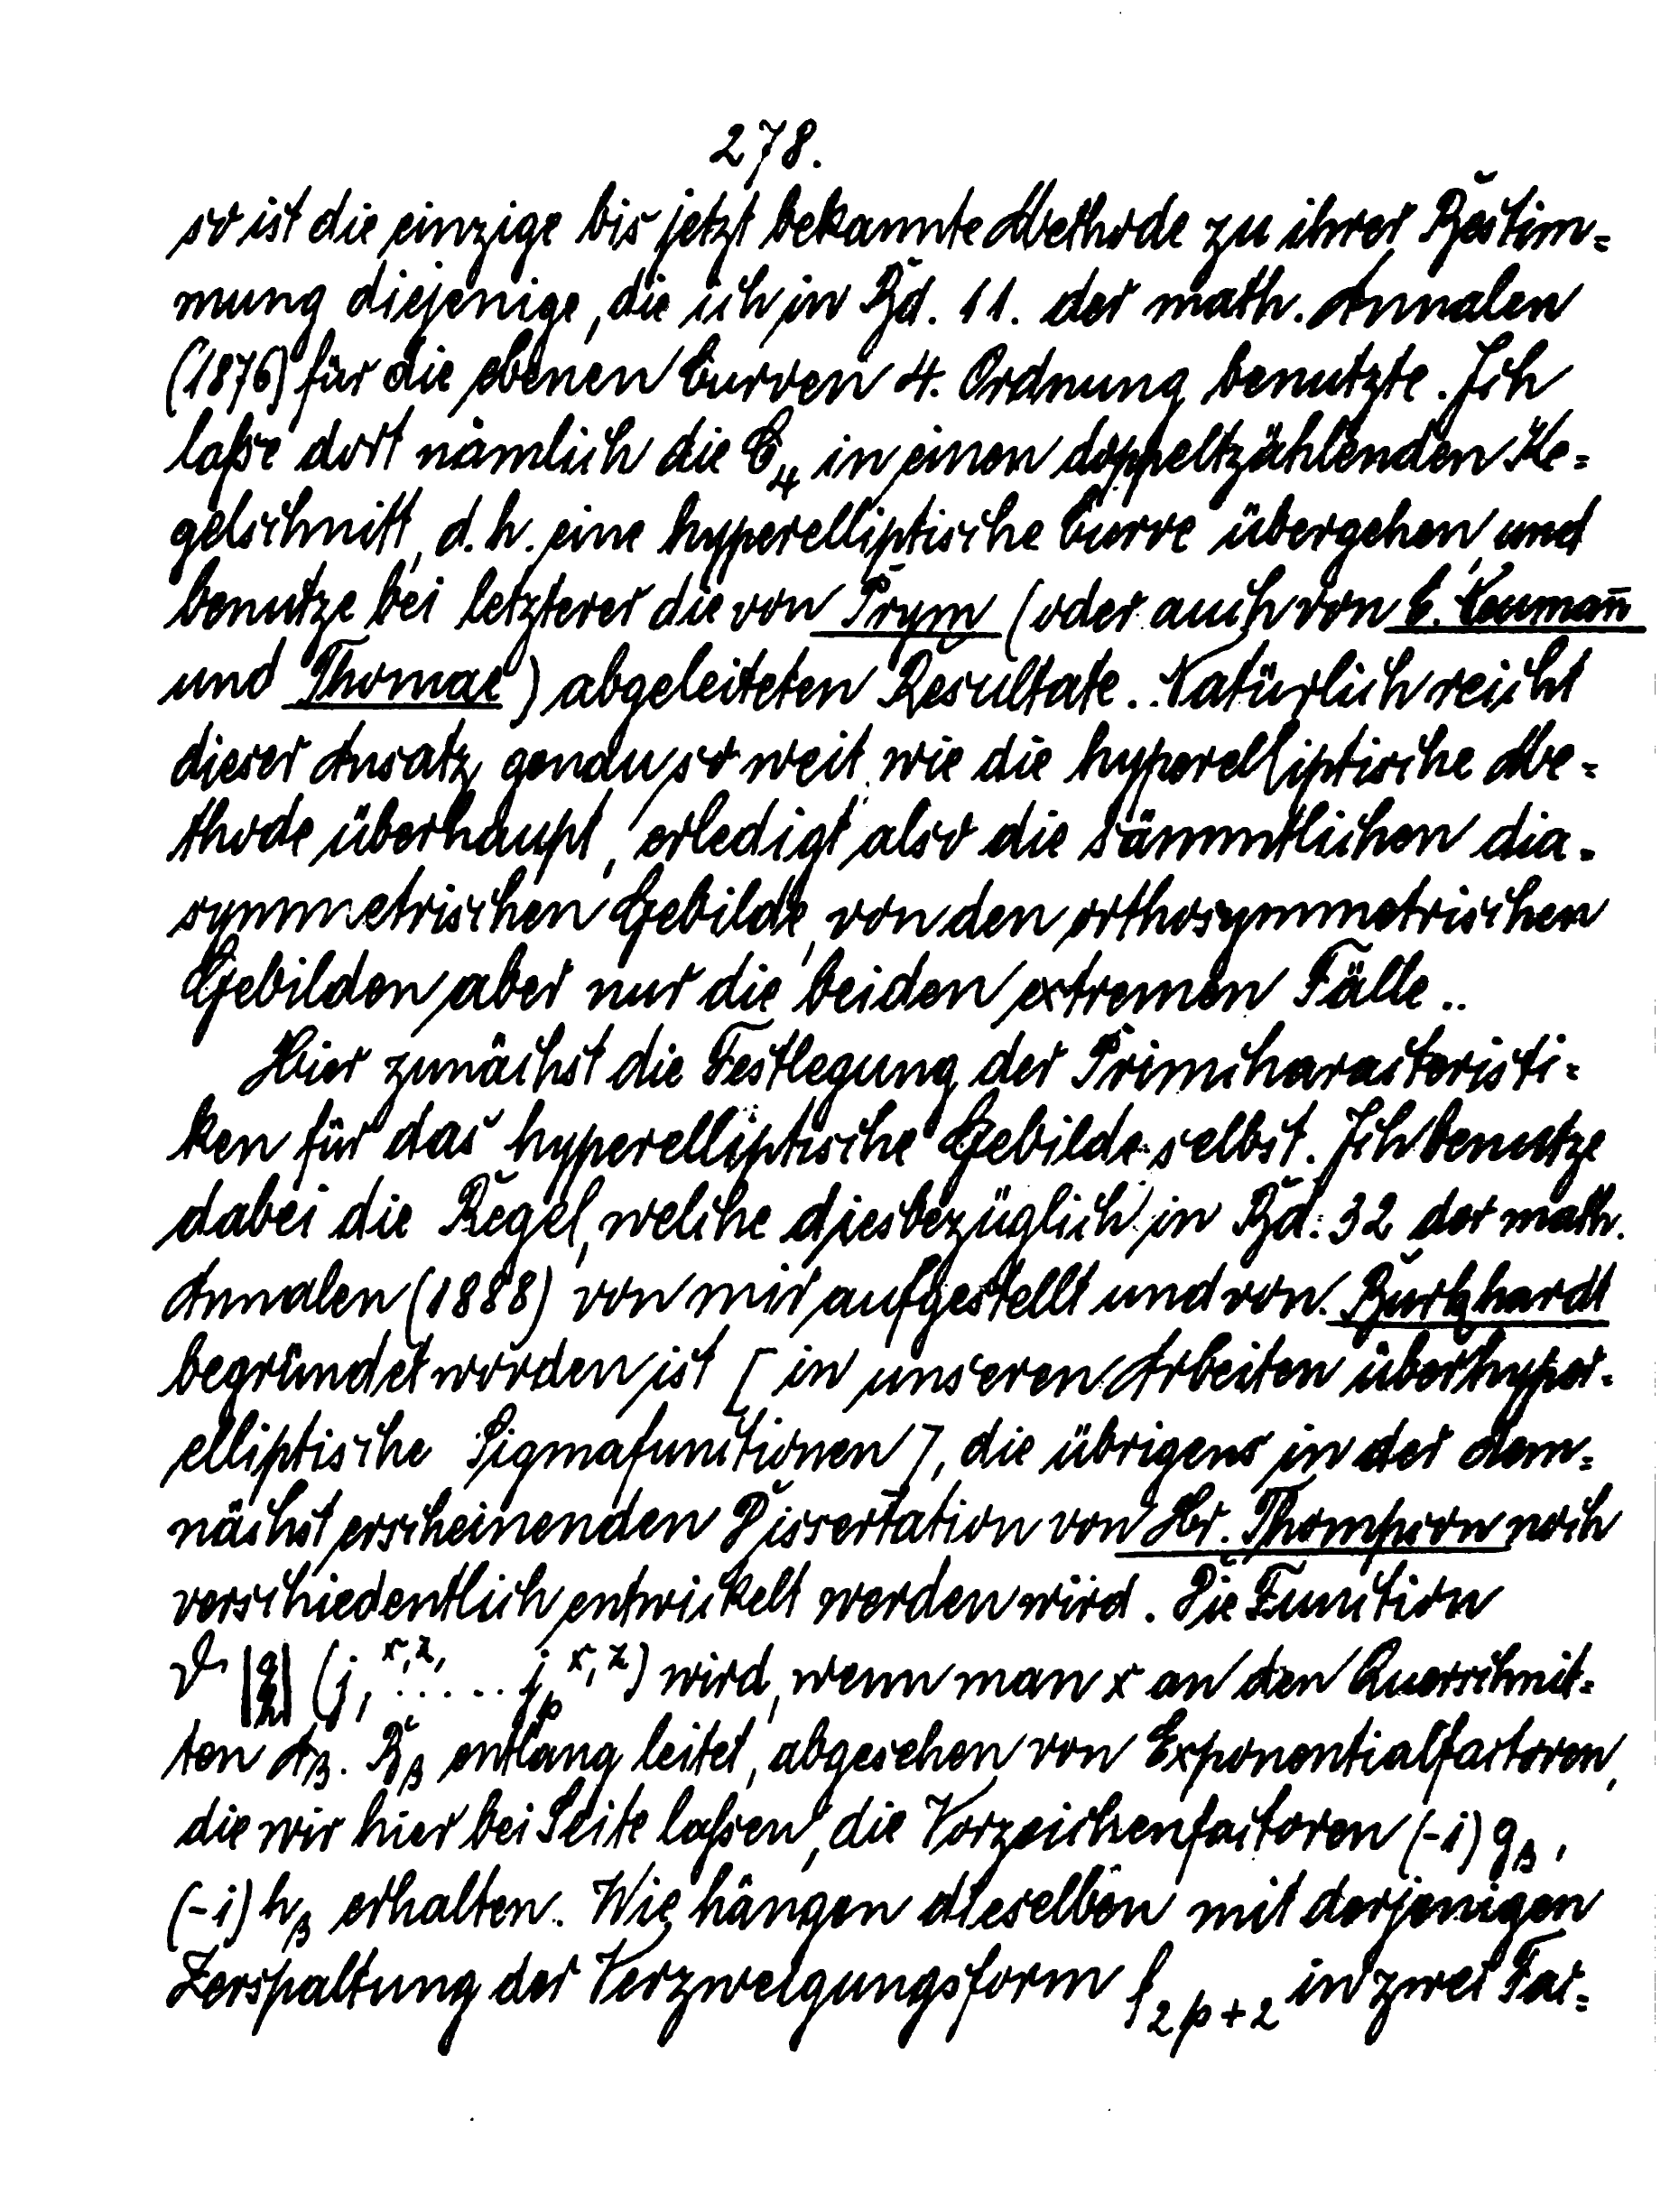 278.
so ist die einzige bis jetzt bekannte Methode zu ihrer Bestim-
mung diejenige, die ich in Bd. 11. der math. Annalen
(1876) für die ebenen Curven 4. Ordnung benutzte. Ich
laße dort nämlich die C₄ in einen doppeltzählenden Ke-
gelschnitt, d.h. eine hyperelliptische Curve übergehen und
benutze bei letzterer die von Prym (oder auch von C. Neumañ
und Thomae) abgeleiteten Resultate. Natürlich reicht
dieser Ansatz genau so weit, wie die hyperelliptische Me-
thode überhaupt, erledigt also die sämmtlichen dia-
symmetrischen Gebilde, von den orthosymmetrischen
Gebilden aber nur die beiden extremen Fälle..
Hier zunächst die Festlegung der Primcharacteristi-
ken für das hyperelliptische Gebilde selbst. Ich benutze
dabei die Regel, welche diesbezüglich in Bd. 32 der math.
Annalen (1888) von mir aufgestellt und von Burkhardt
begründet worden ist [in unseren Arbeiten über hyper-
elliptische Sigmafunctionen], die übrigens in der dem-
nächst erscheinenden Dissertation von Hr. Thompson noch
verschiedentlich entwickelt werden wird. Die Function
ϑ |g h| (j₁ˣ'ᶻ, ..... jₚˣ'ᶻ) wird, wenn man x an den Querschnit-
ten Aᵦ. Bᵦ entlang leitet, abgesehen von Exponentialfactoren,
die wir hier bei Seite laßen, die Vorzeichenfactoren (-1) gᵦ,
(-1) hᵦ erhalten. Wie hängen dieselben mit derjenigen
Zerspaltung der Verzweigungsform f₂ₚ₊₂ in zwei Fac-